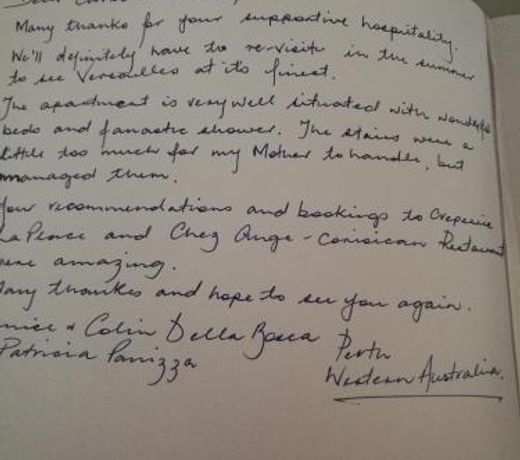 Many thanks for your supportive hospitality.
We'll definitely have to re-visit in the summer
to see Versailles at it's finest.
The apartment is very well situated with wonderful
beds and fanastic shower. The stairs were a
little too much for my Mother to handle, but
managed them.
Your recommendations and bookings to Creperie
La Place and Chez Ange - Corsican Restaurant
were amazing.
Many thanks and hope to see you again.
& Colin Della Bosca Perth
Patricia Panizza Western Australia.